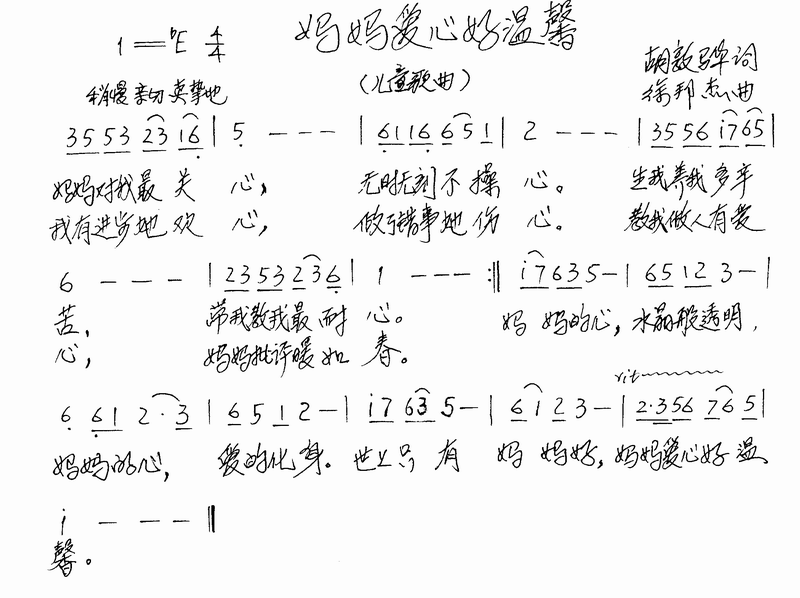 妈妈爱心好温馨
1=♭E 4/4
(儿童歌曲)
胡敦骅词
徐邦杰曲
稍慢 亲切 真挚地
35 53 23 i6 | 5 - - - | 61 16 6 5 1 | 2 - - - | 35 56 i7 65 |
妈妈对我最关心, 无时无刻不操心。 生我养我多辛
我有进步她欢心, 做了错事她伤心。 教我做人有爱
6 - - - | 23 53 2 3 6 | 1 - - - :‖ i7 63 5 - | 65 12 3 - |
苦, 带我教我最耐心。 妈妈的心,水晶般透明,
心, 妈妈批评暖如春。
rit
6 61 2·3 | 6 5 1 2 - | i7 63 5 - | 6 i 2 3 - | 2·3 56 76 5 |
妈妈的心, 爱的化身。世上只有妈妈好,妈妈爱心好温
i - - - ‖
馨。